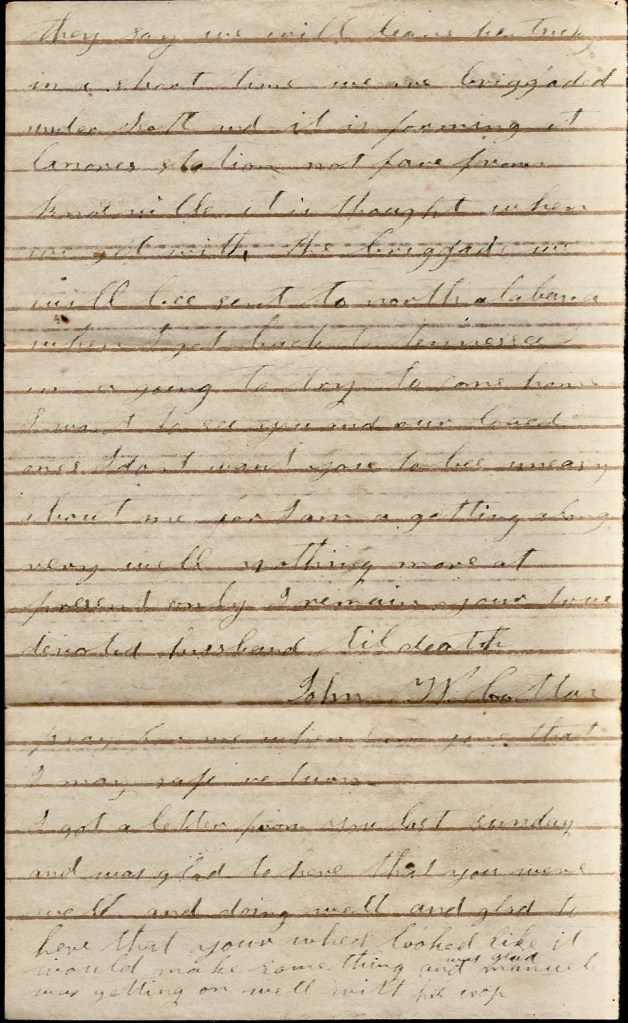 they say we will leave
in a short time we are briggaded
under Scott and it is forming at
Lanores station not fare from
knoxville it is thought when
we get with the briggade we
will bee sent to north alabama
when I get back to tennessee I
am a going to try to come home
I want to see you and our loved
ones I dont want you to bee uneasy
about me for I am a getting along
very well nothing more at
present only I remain your true
devoted husband til death
John W. Cottar
pray for me when I am gone that
I may safe return
I got a letter from you last sunday
and was glad to here that you were
well and doing well and glad to
here that your wheet looked like it
would make something and was glad manuel
was getting on well with his crop